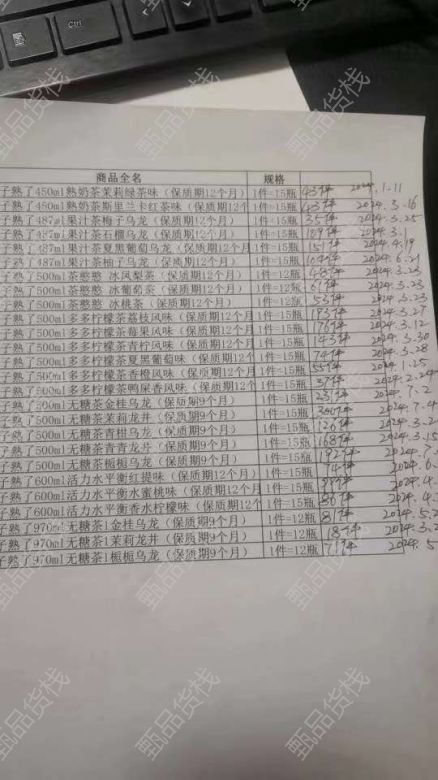 Ctrl
商品全名 规格
子熟了450ml熟奶茶茉莉绿茶味（保质期12个月） 1件=15瓶 43件 2024.1.11
子熟了450ml熟奶茶斯里兰卡红茶味（保质期12个 1件=15瓶 43件 2024.3.16
子熟了487ml果汁茶梅子乌龙（保质期12个月） 1件=15瓶 35件 2024.3.25
子熟了487ml果汁茶石榴乌龙（保质期12个月） 1件=15瓶 2024.3.1
子熟了487ml果汁茶夏黑葡萄乌龙（保质期12个月） 1件=15瓶 151件 2024.4.19
子熟了487ml果汁茶柚子乌龙（保质期12个月） 1件=15瓶 104件 2024.6.21
子熟了500ml茶憨憨 冰凤梨茶（保质期12个月） 1件=15瓶 48件 2024.3.23
子熟了500ml茶憨憨 冰葡萄茶（保质期12个月） 1件=15瓶 61件 2024.3.23
子熟了500ml茶憨憨 冰桃茶（保质期12个月） 1件=15瓶 53件 2024.3.23
子熟了500ml多多柠檬茶荔枝风味（保质期12个月 1件=15瓶 193件 2024.3.27
子熟了500ml多多柠檬茶莓果风味（保质期12个月 1件=15瓶 176件 2024.3.12
子熟了500ml多多柠檬茶青柠风味（保质期12个月 1件=15瓶 143件 2024.3.30
子熟了500ml多多柠檬茶夏黑葡萄味（保质期12个月 1件=15瓶 74件 2024.3.28
子熟了500ml多多柠檬茶香橙风味（保质期12个月 1件=15瓶 55件 2024.1.25
子熟了500ml多多柠檬茶鸭屎香风味（保质期12个月 1件=15瓶 37件 2024.2.24
子熟了500ml无糖茶金桂乌龙（保质期9个月） 1件=15瓶 23件 2024.7.2
子熟了500ml无糖茶茉莉龙井（保质期9个月） 1件=15瓶 2024.7.4
子熟了500ml无糖茶青柑乌龙（保质期9个月） 1件=15瓶 126件 2024.3.2
子熟了500ml无糖茶青青龙井（保质期9个月） 1件=15瓶 168件 2024.3.15
子熟了500ml无糖茶栀栀乌龙（保质期9个月） 1件=15瓶 192件 2024.7
子熟了600ml活力水平衡红提味（保质期12个月） 1件=15瓶 74件 2024.6.
子熟了600ml活力水平衡水蜜桃味（保质期12个月） 1件=15瓶 2024.4.
子熟了600ml活力水平衡香水柠檬味（保质期12个月） 1件=15瓶 86件 2024.4.
子熟了970ml无糖茶1金桂乌龙（保质期9个月） 1件=12瓶 81件 2024.5.2
子熟了970ml无糖茶1茉莉龙井（保质期9个月） 1件=12瓶 18件 2024.3.2
子熟了970ml无糖茶1栀栀乌龙（保质期9个月） 1件=12瓶 71件 2024.5
甄品货栈